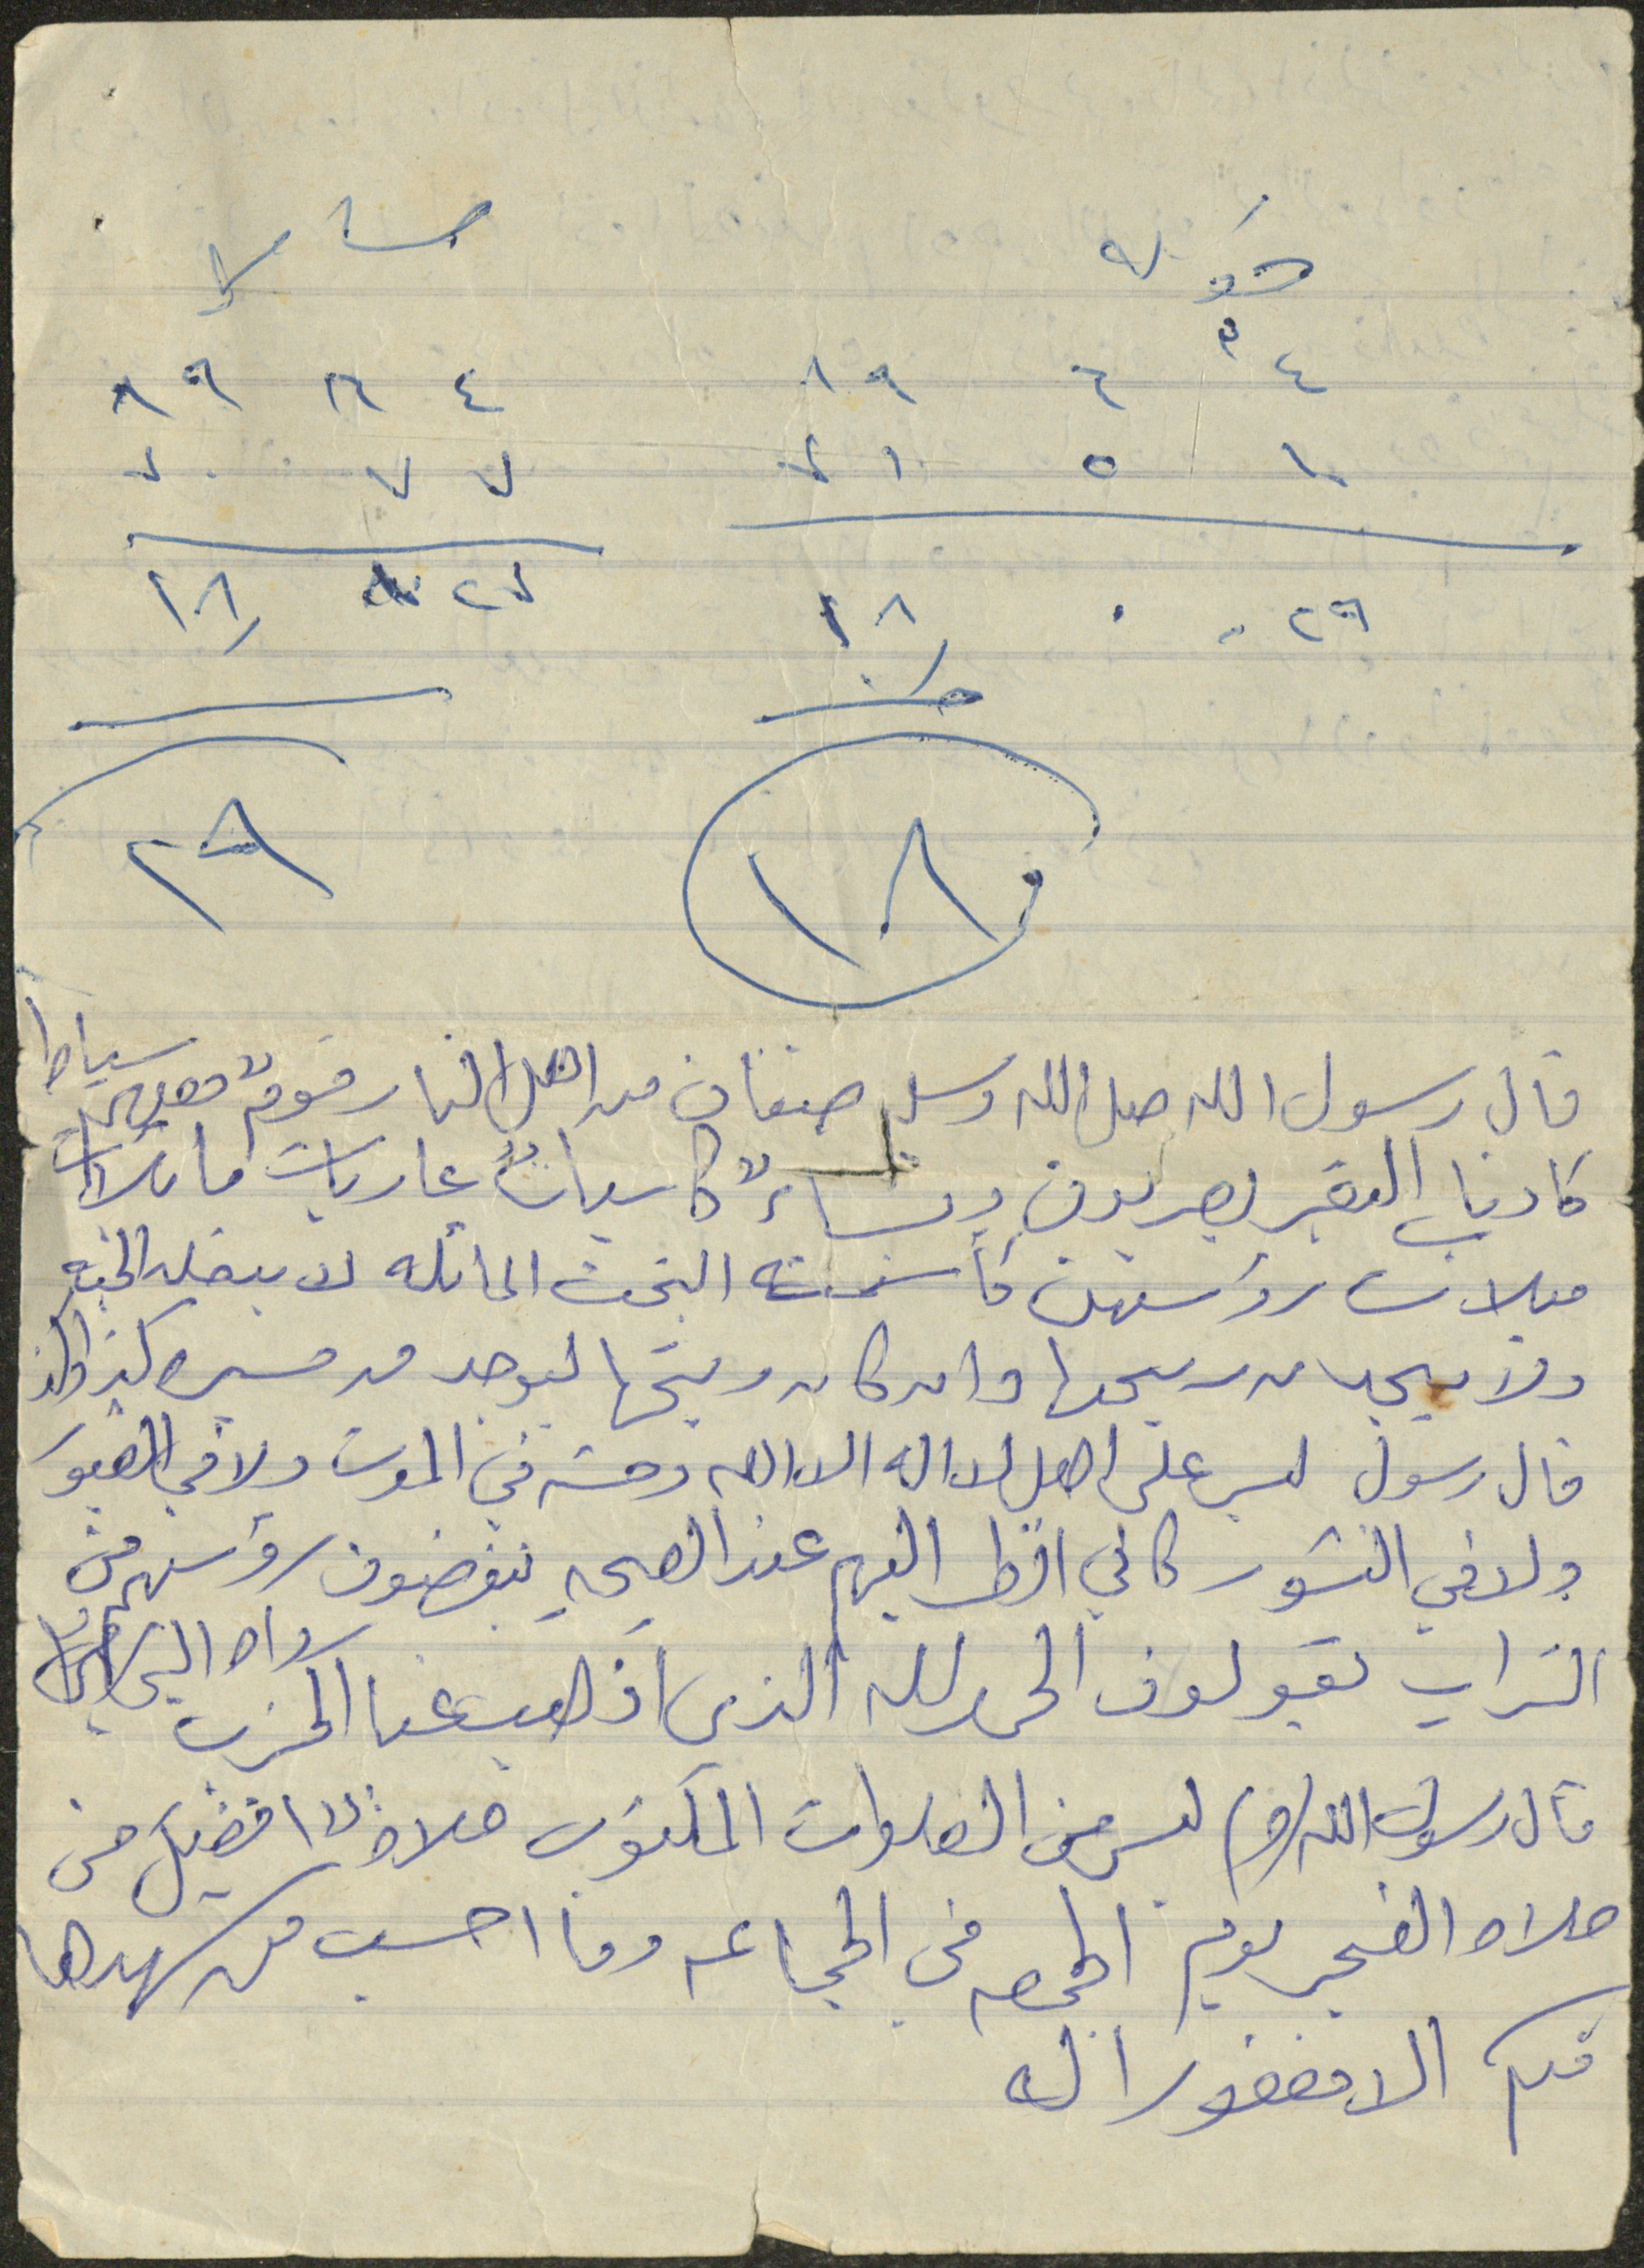 ٤ ٦ ٨٩
٤ ٨٩
٢٩ ١٨
١٨
١٨ ٢٨
قال رسول الله صل الله وسلم صنفان من اهل النار قومٌ معهم سياطا
كاذناب البقر يضربون ونساءٌ كاسياتٌ عاريات مائلات
ميلات رؤسهن كأسنمته البخت المائله لا يدخلن الجنه
ولا يجدن ريحها وان كان ريحها ليوجد من مسيره كذا وكذا
قال رسول ليس على اهل لا اله الا الله وحشه في الموت ولا في القبور
ولا في النشور كاني انظر اليهم عند الصيحه ينفضون رؤسهم من
التراب يقولون الحمد لله الذي اذهب عنا الحزن رواه
قال رسول الله (ص) ليس من الصلوات المكتوب صلاةٌ افضل من
صلاه الفجر يوم الجمعه في الجماعه وما احسب من شهدها
منكم الا مغفورا له